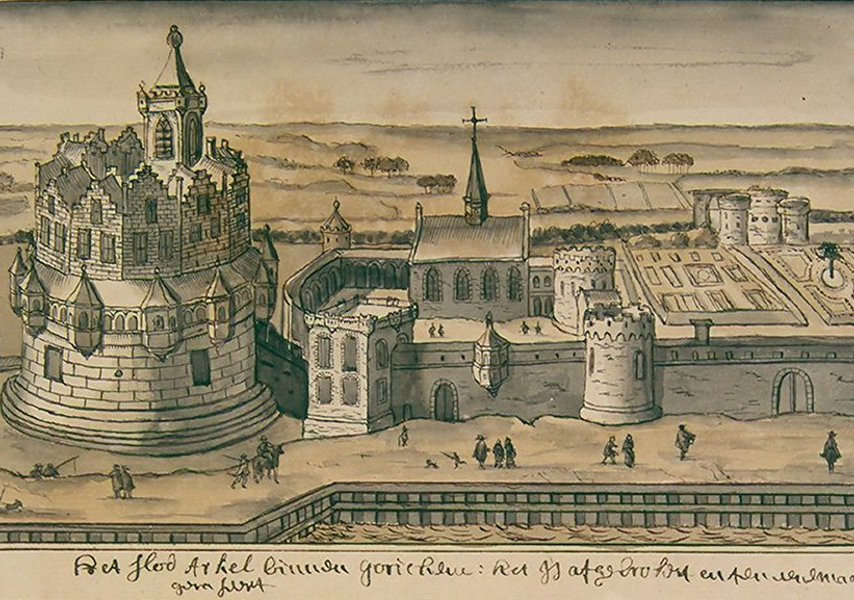 Het slod Arkel binnen Gorichem: het is afgebroken en ten eenema
geraseert